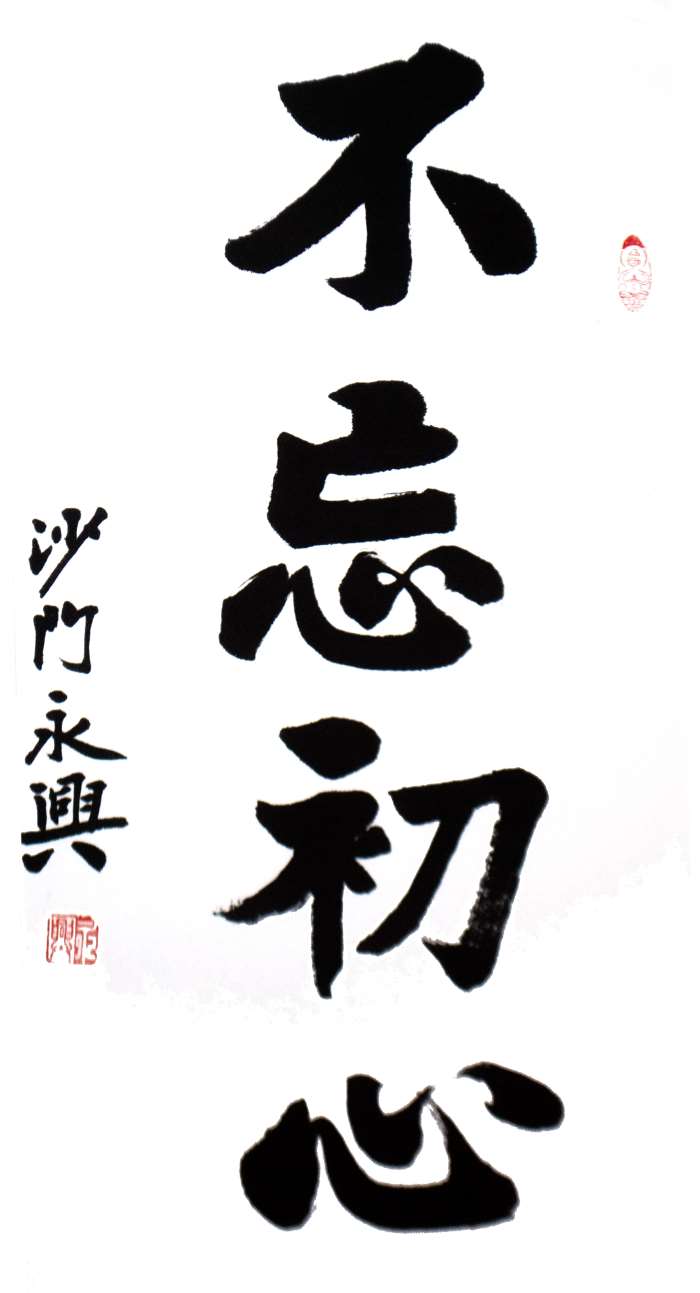 不忘初心
沙門永興